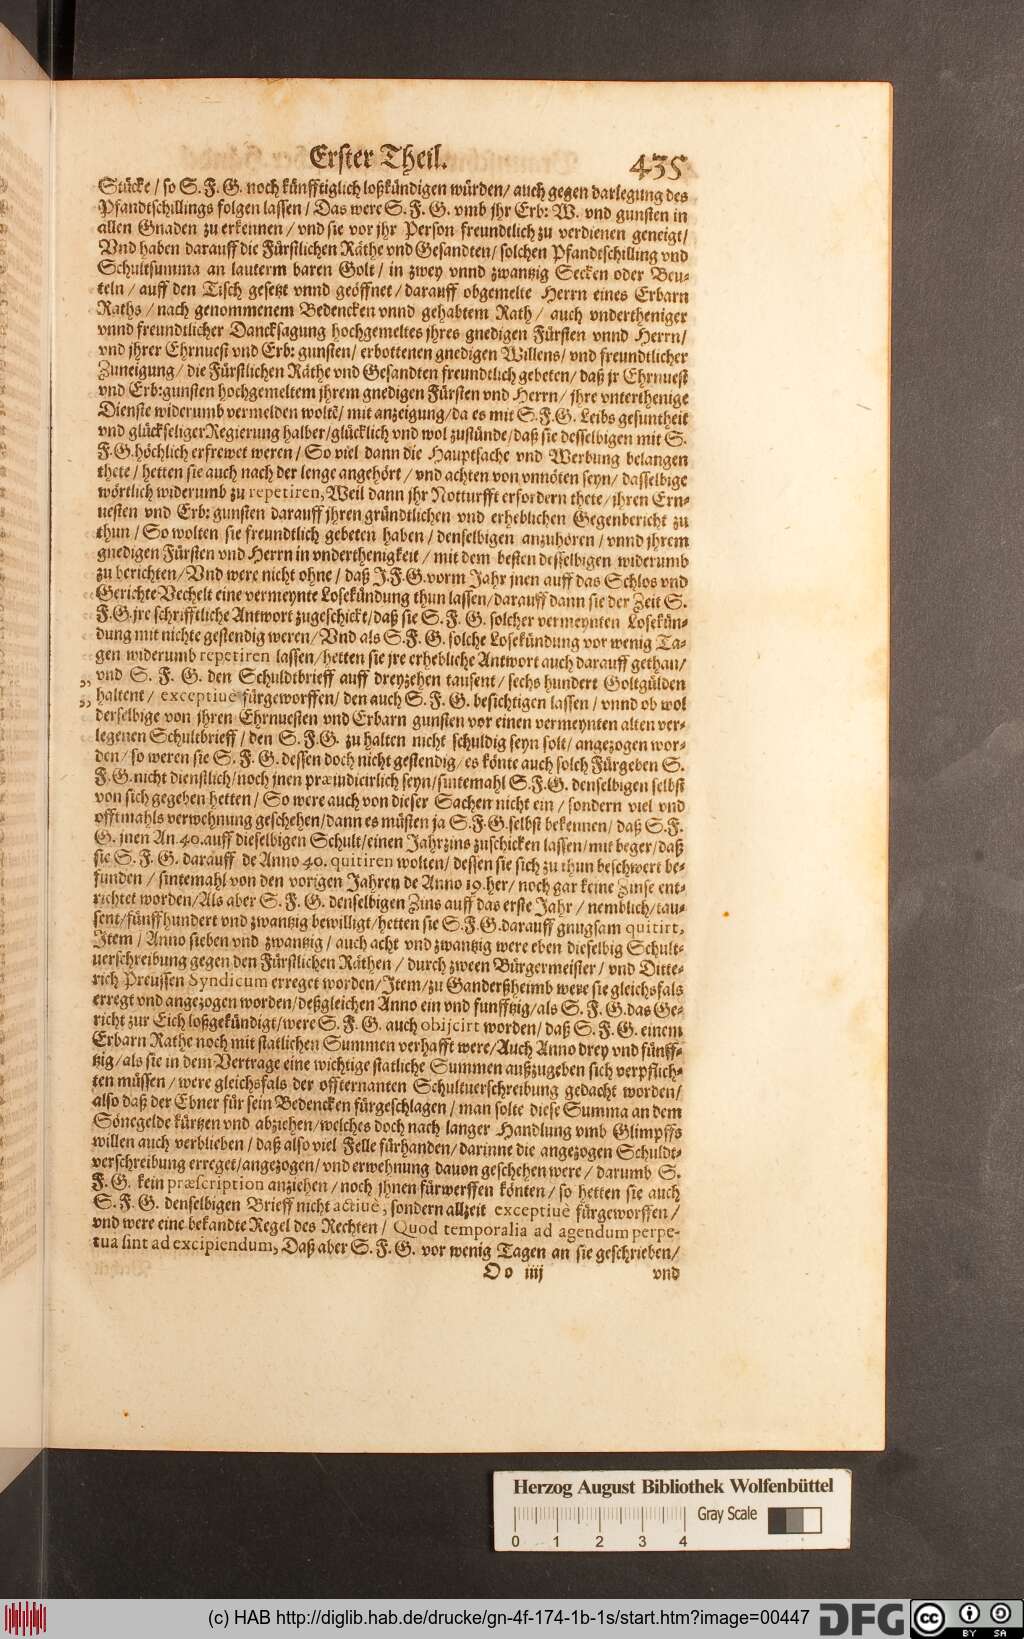 Erster Theil. 435
Stücke / so S. F. G. noch künfftiglich loßkündigen würden / auch gegen darlegung des
Pfandtschillings folgen lassen / Das were S. F. G. vmb jhr Erb: W. vnd gunsten in
allen Gnaden zu erkennen / vnd sie vor jhr Person freundtlich zu verdienen geneigt /
Vnd haben darauff die Fürstlichen Räthe vnd Gesandten / solchen Pfandtschilling vnd
Schultsumma an lauterm baren Golt / in zwey vnnd zwantzig Secken oder Beu-
teln / auff den Tisch gesetzt vnnd geöffnet / darauff obgemelte Herrn eines Erbarn
Raths / nach genommenem Bedencken vnnd gehabtem Rath / auch vndertheniger
vnnd freundtlicher Dancksagung hochgemeltes jhres gnedigen Fürsten vnnd Herrn /
vnd jhrer Ehrnuest vnd Erb: gunsten / erbottenen gnedigen Willens / vnd freundtlicher
Zuneigung / die Fürstlichen Räthe vnd Gesandten freundtlich gebeten / daß jr Ehrnuest
vnd Erb: gunsten hochgemeltem jhrem gnedigen Fürsten vnd Herrn / jhre vnterthenige
Dienste widerumb vermelden woltē / mit anzeigung / da es mit S. F. G. Leibs gesuntheit
vnd glückseliger Regierung halber / glücklich vnd wol zustünde / daß sie desselbigen mit S.
F. G. höchlich erfrewet weren / So viel dann die Hauptsache vnd Werbung belangen
thete / hetten sie auch nach der lenge angehört / vnd achten von vnnöten seyn / dasselbige
wörtlich widerumb zu repetiren, Weil dann jhr Notturfft erfordern thete / jhren Ern-
uesten vnd Erb: gunsten darauff jhren gründtlichen vnd erheblichen Gegenbericht zu
thun / So wolten sie freundtlich gebeten haben / denselbigen anzuhören / vnnd jhrem
gnedigen Fürsten vnd Herrn in vnderthenigkeit / mit dem besten desselbigen widerumb
zu berichten / Vnd were nicht ohne / daß J. F. G. vorm Jahr jnen auff das Schlos vnd
Gerichte Vechelt eine vermeynte Losekündung thun lassen / darauff dann sie der Zeit S.
F. G. jre schrifftliche Antwort zugeschickt / daß sie S. F. G. solcher vermeynten Losekün-
dung mit nichte gestendig weren / Vnd als S. F. G. solche Losekündung vor wenig Ta-
gen widerumb repetiren lassen / hetten sie jre erhebliche Antwort auch darauff gethan /
„ vnd S. F. G. den Schuldtbrieff auff dreyzehen tausent / sechs hundert Goltgülden
„ haltent / exceptiuè fürgeworffen / den auch S. F. G. besichtigen lassen / vnnd ob wol
derselbige von jhren Ehrnuesten vnd Erbarn gunsten vor einen vermeynten alten ver-
legenen Schultbrieff / den S. F. G. zu halten nicht schuldig seyn solt / angezogen wor-
den / so weren sie S. F. G. dessen doch nicht gestendig / es könte auch solch Fürgeben S.
F. G. nicht dienstlich / noch jnen præiudicirlich seyn / sintemahl S. F. G. denselbigen selbst
von sich gegeben hetten / So were auch von dieser Sachen nicht ein / sondern viel vnd
offtmahls verwehnung geschehen / dann es müsten ja S. F. G. selbst bekennen / daß S. F.
G. jnen An. 40. auff dieselbigen Schult / einen Jahrzins zuschicken lassen / mit beger / daß
sie S. F. G. darauff de Anno 40. quitiren wolten / dessen sie sich zu thun beschwert be-
funden / sintemahl von den vorigen Jahren de Anno 19. her / noch gar keine Zinse ent-
richtet worden / Als aber S. F. G. denselbigen Zins auff das erste Jahr / nemblich / tau-
sent / fünffhundert vnd zwantzig bewilligt / hetten sie S. F. G. darauff gnugsam quitirt,
Item / Anno sieben vnd zwantzig / auch acht vnd zwantzig were eben dieselbig Schult-
uerschreibung gegen den Fürstlichen Räthen / durch zween Bürgermeister / vnd Ditte-
rich Preussen Syndicum erreget worden / Item / zu Ganderßheimb were sie gleichsfals
erregt vnd angezogen worden / deßgleichen Anno ein vnd funfftzig / als S. F. G. das Ge-
richt zur Eich loßgekündigt / were S. F. G. auch obijcirt worden / daß S. F. G. einem
Erbarn Rathe noch mit statlichen Summen verhafft were / Auch Anno drey vnd fünff-
tzig / als sie in dem Vertrage eine wichtige statliche Summen außzugeben sich verpflich-
ten müssen / were gleichsfals der offternanten Schultuerschreibung gedacht worden /
also daß der Ebner für sein Bedencken fürgeschlagen / man solte diese Summa an dem
Sönegelde kürtzen vnd abziehen / welches doch nach langer Handlung vmb Glimpffs
willen auch verblieben / daß also viel Felle fürhanden / darinne die angezogen Schuldt-
verschreibung erreget / angezogen / vnd erwehnung dauon geschehen were / darumb S.
F. G. kein præscription anziehen / noch jhnen fürwerffen könten / so hetten sie auch
S. F. G. denselbigen Brieff nicht actiuè, sondern allzeit exceptiuè fürgeworffen /
vnd were eine bekandte Regel des Rechten / Quod temporalia ad agendum perpe-
tua sint ad excipiendum, Daß aber S. F. G. vor wenig Tagen an sie geschrieben /
Oo iiij vnd
Herzog August Bibliothek Wolfenbüttel
Gray Scale
0 1 2 3 4
(c) HAB http://diglib.hab.de/drucke/gn-4f-174-1b-1s/start.htm?image=00447
DFG cc BY SA